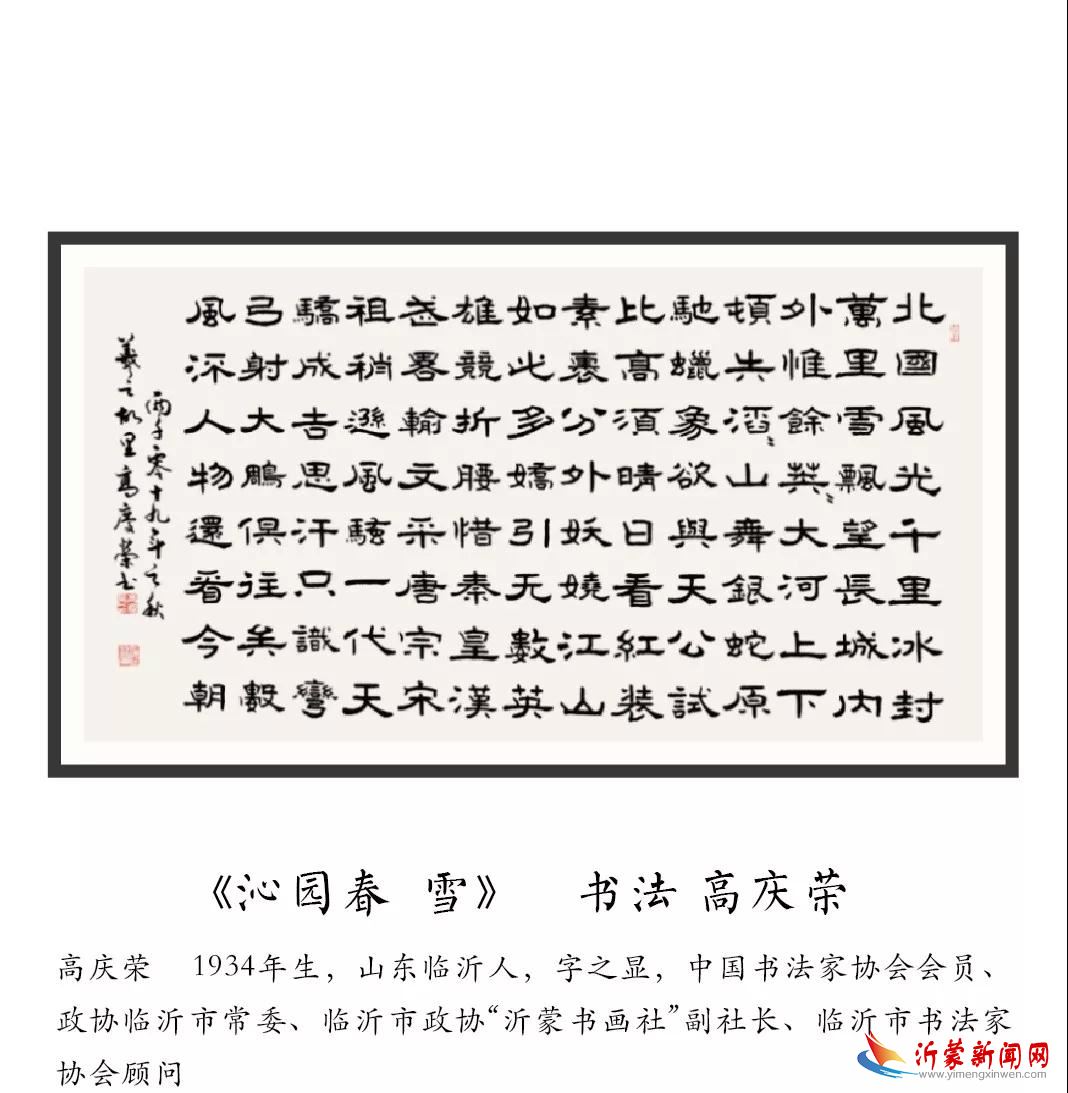 北國風光千里冰封
萬里雪飄望長城内
外惟餘莽〻大河上下
頓失滔〻山舞銀蛇原
馳蠟象欲與天公試
比高須晴日看紅裝
素裹分外妖嬈江山
如此多嬌引无數英
雄競折腰惜秦皇漢
武畧輸文采唐宗宋
祖稍遜風騷一代天
驕成吉思汗只識彎
弓射大鵰俱往矣數
風流人物還看今朝
兩千零十九年之秋
羲之故里高慶榮書
《沁园春 雪》 书法 高庆荣
高庆荣 1934年生，山东临沂人，字之显，中国书法家协会会员、
政协临沂市常委、临沂市政协“沂蒙书画社”副社长、临沂市书法家
协会顾问
沂蒙新闻网
www.yimengxinwen.com